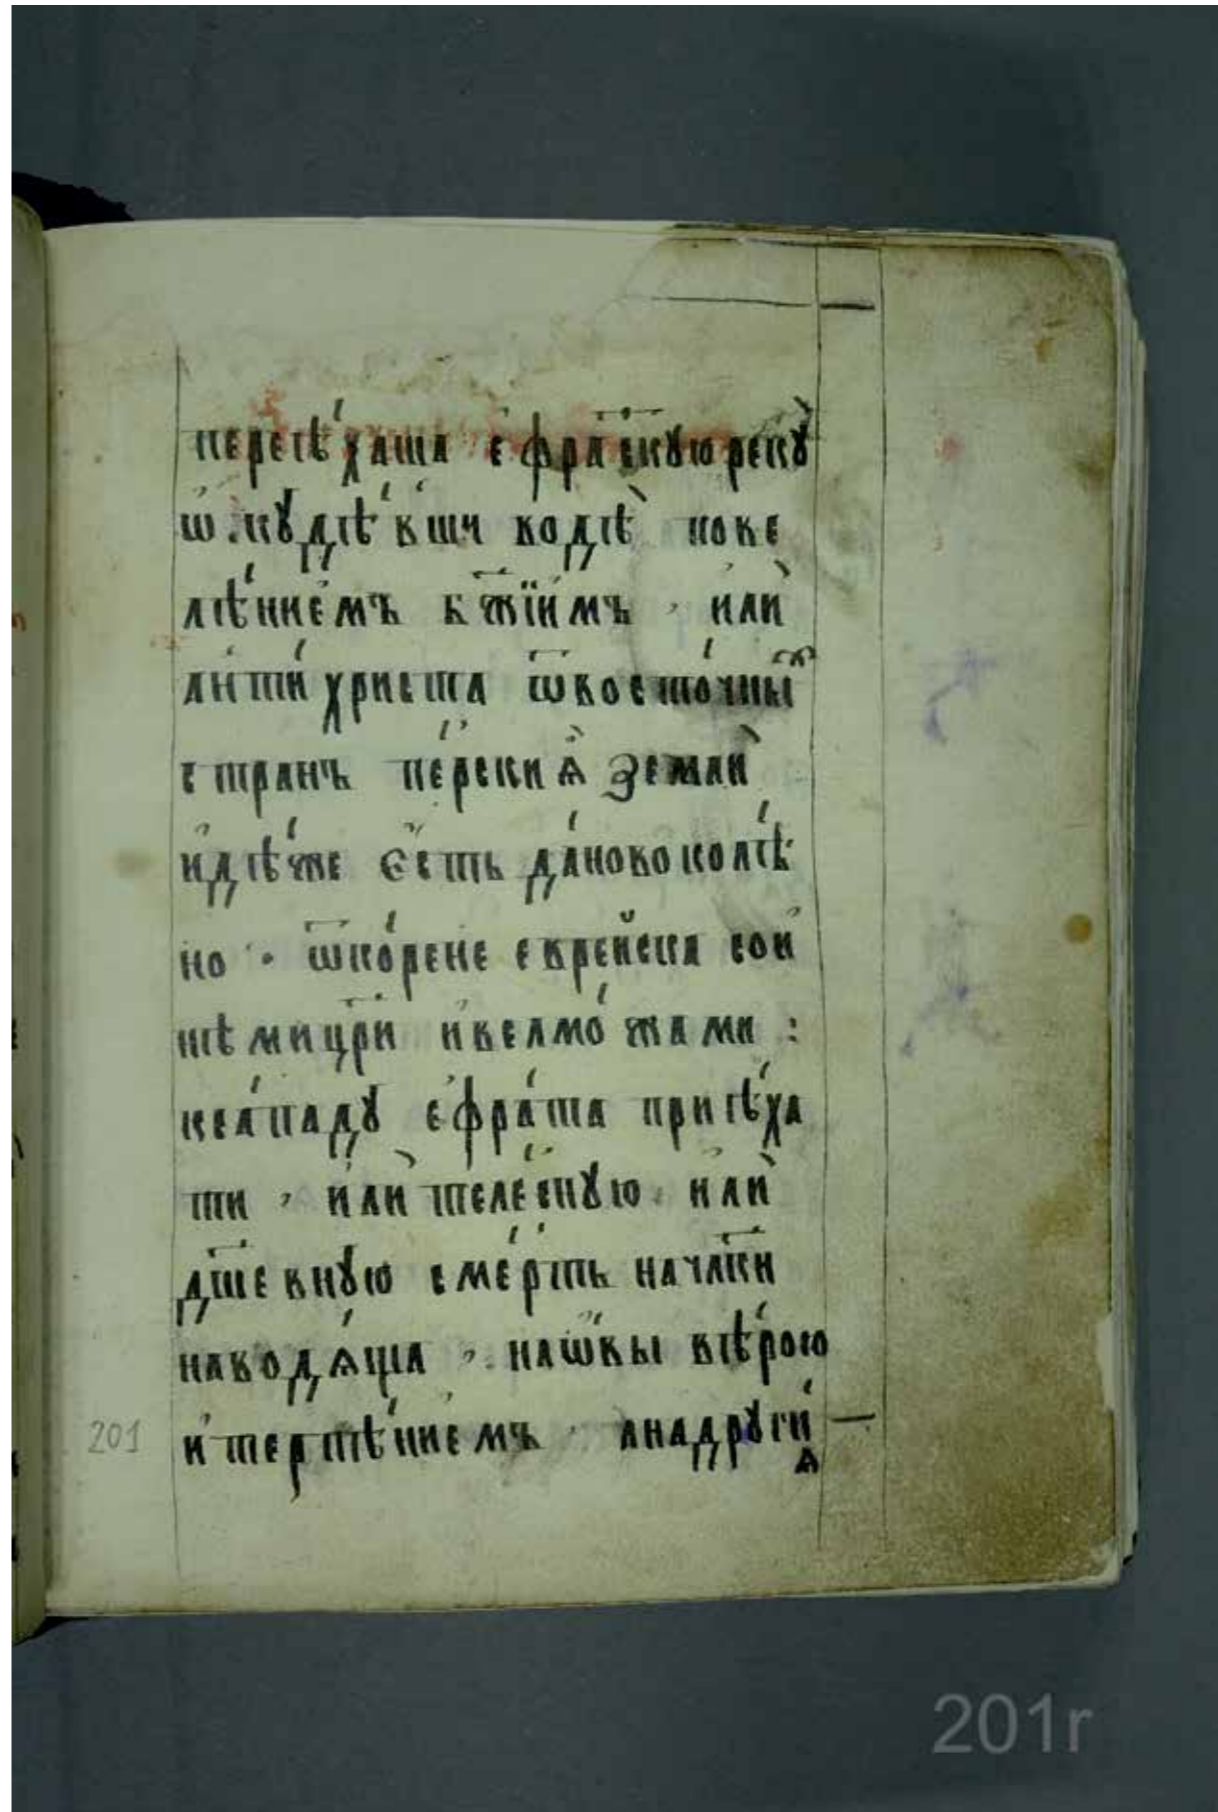 переѣ́хаша е҆фра́скую рекꙋ̀
ѿнꙋдѣ́вши водѣ̀ пове
лѣ́ниемъ бж҃їимъ , и҆лѝ
антѝхриста ѿ восто́чны
странъ пе́рскиѧ землѝ
и҆дѣ́же є҆сть да́ново колѣ
но · ѿ ко́рене еврейска сой
тѣми цр҃и и҆ велмо́жами :
ква́падꙋ е҆фра́та приѣ́ха
ти , и҆лѝ телѐснꙋю и҆лѝ
дш҃евнꙋю сме́рть на чл҃ки
наводѧ́ща , на ѡ҆вы вѣ́рою
и҆ терпѣ́ниемъ а на дрꙋги́
ѧ
201
201r